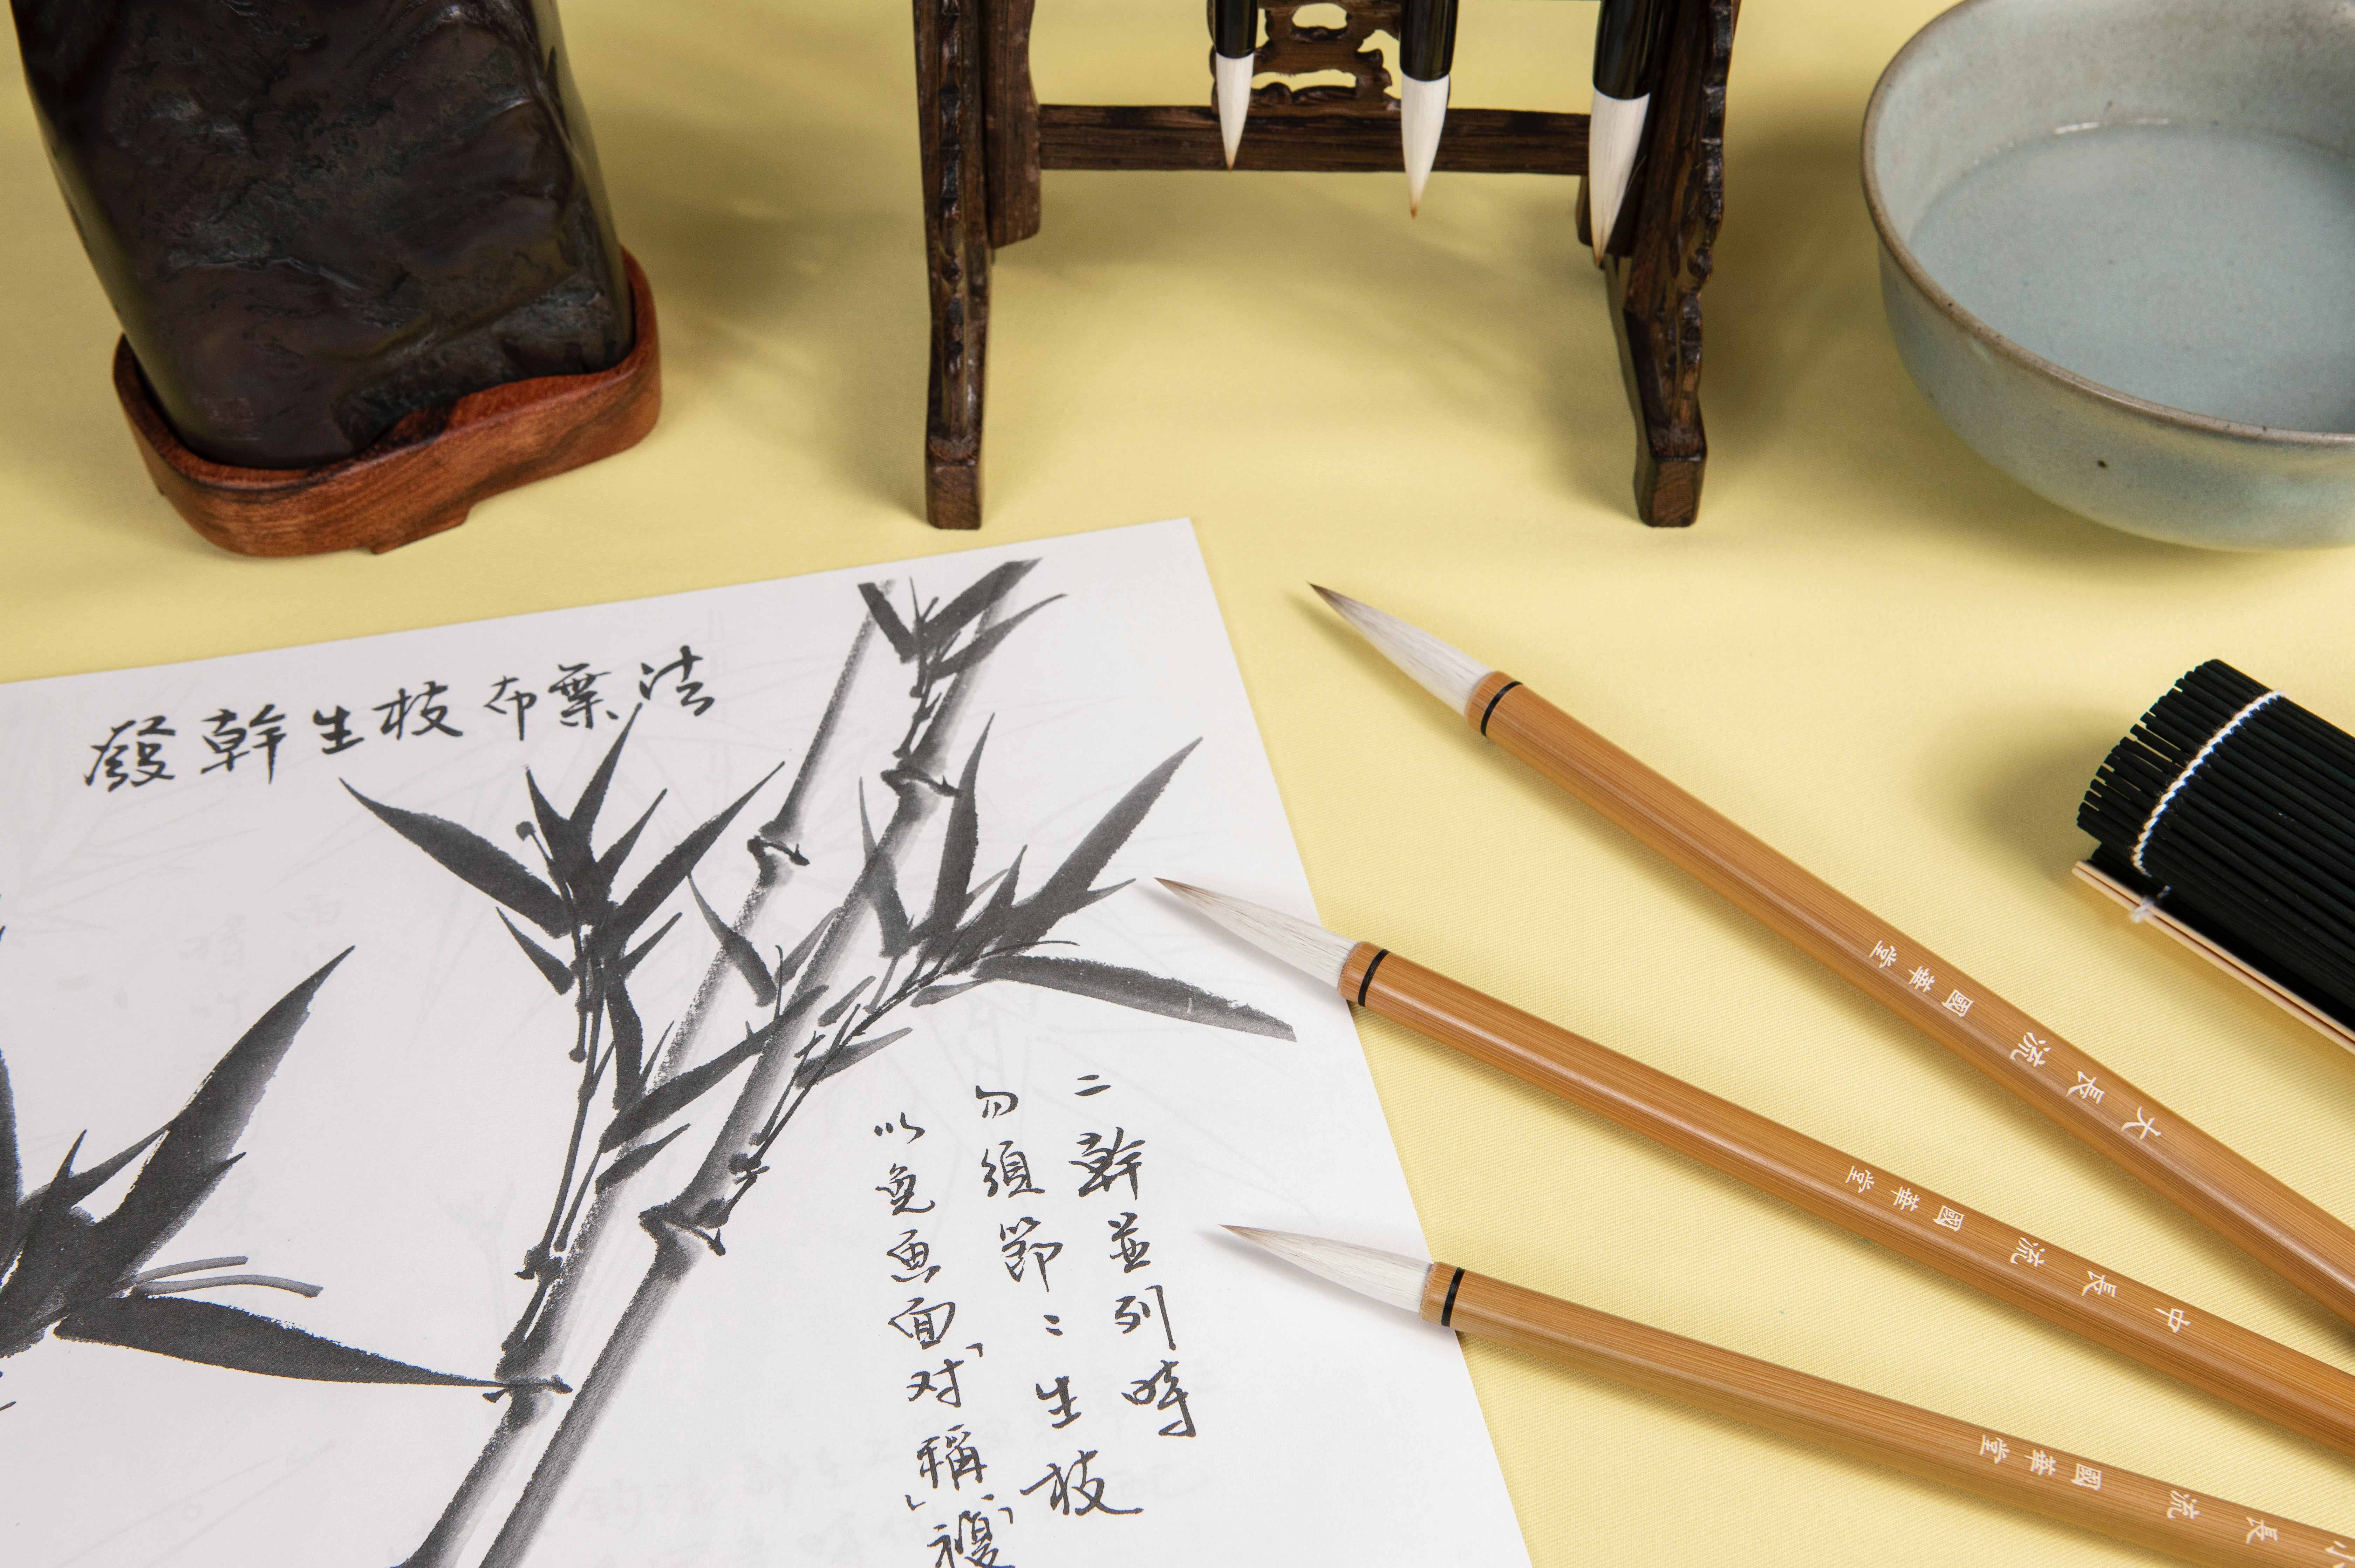 發幹生枝布葉法
二幹並列時
勿須節〻生枝
以免畫面「对稱」「複
大長流 國華堂
中長流 國華堂
小長流 國華堂